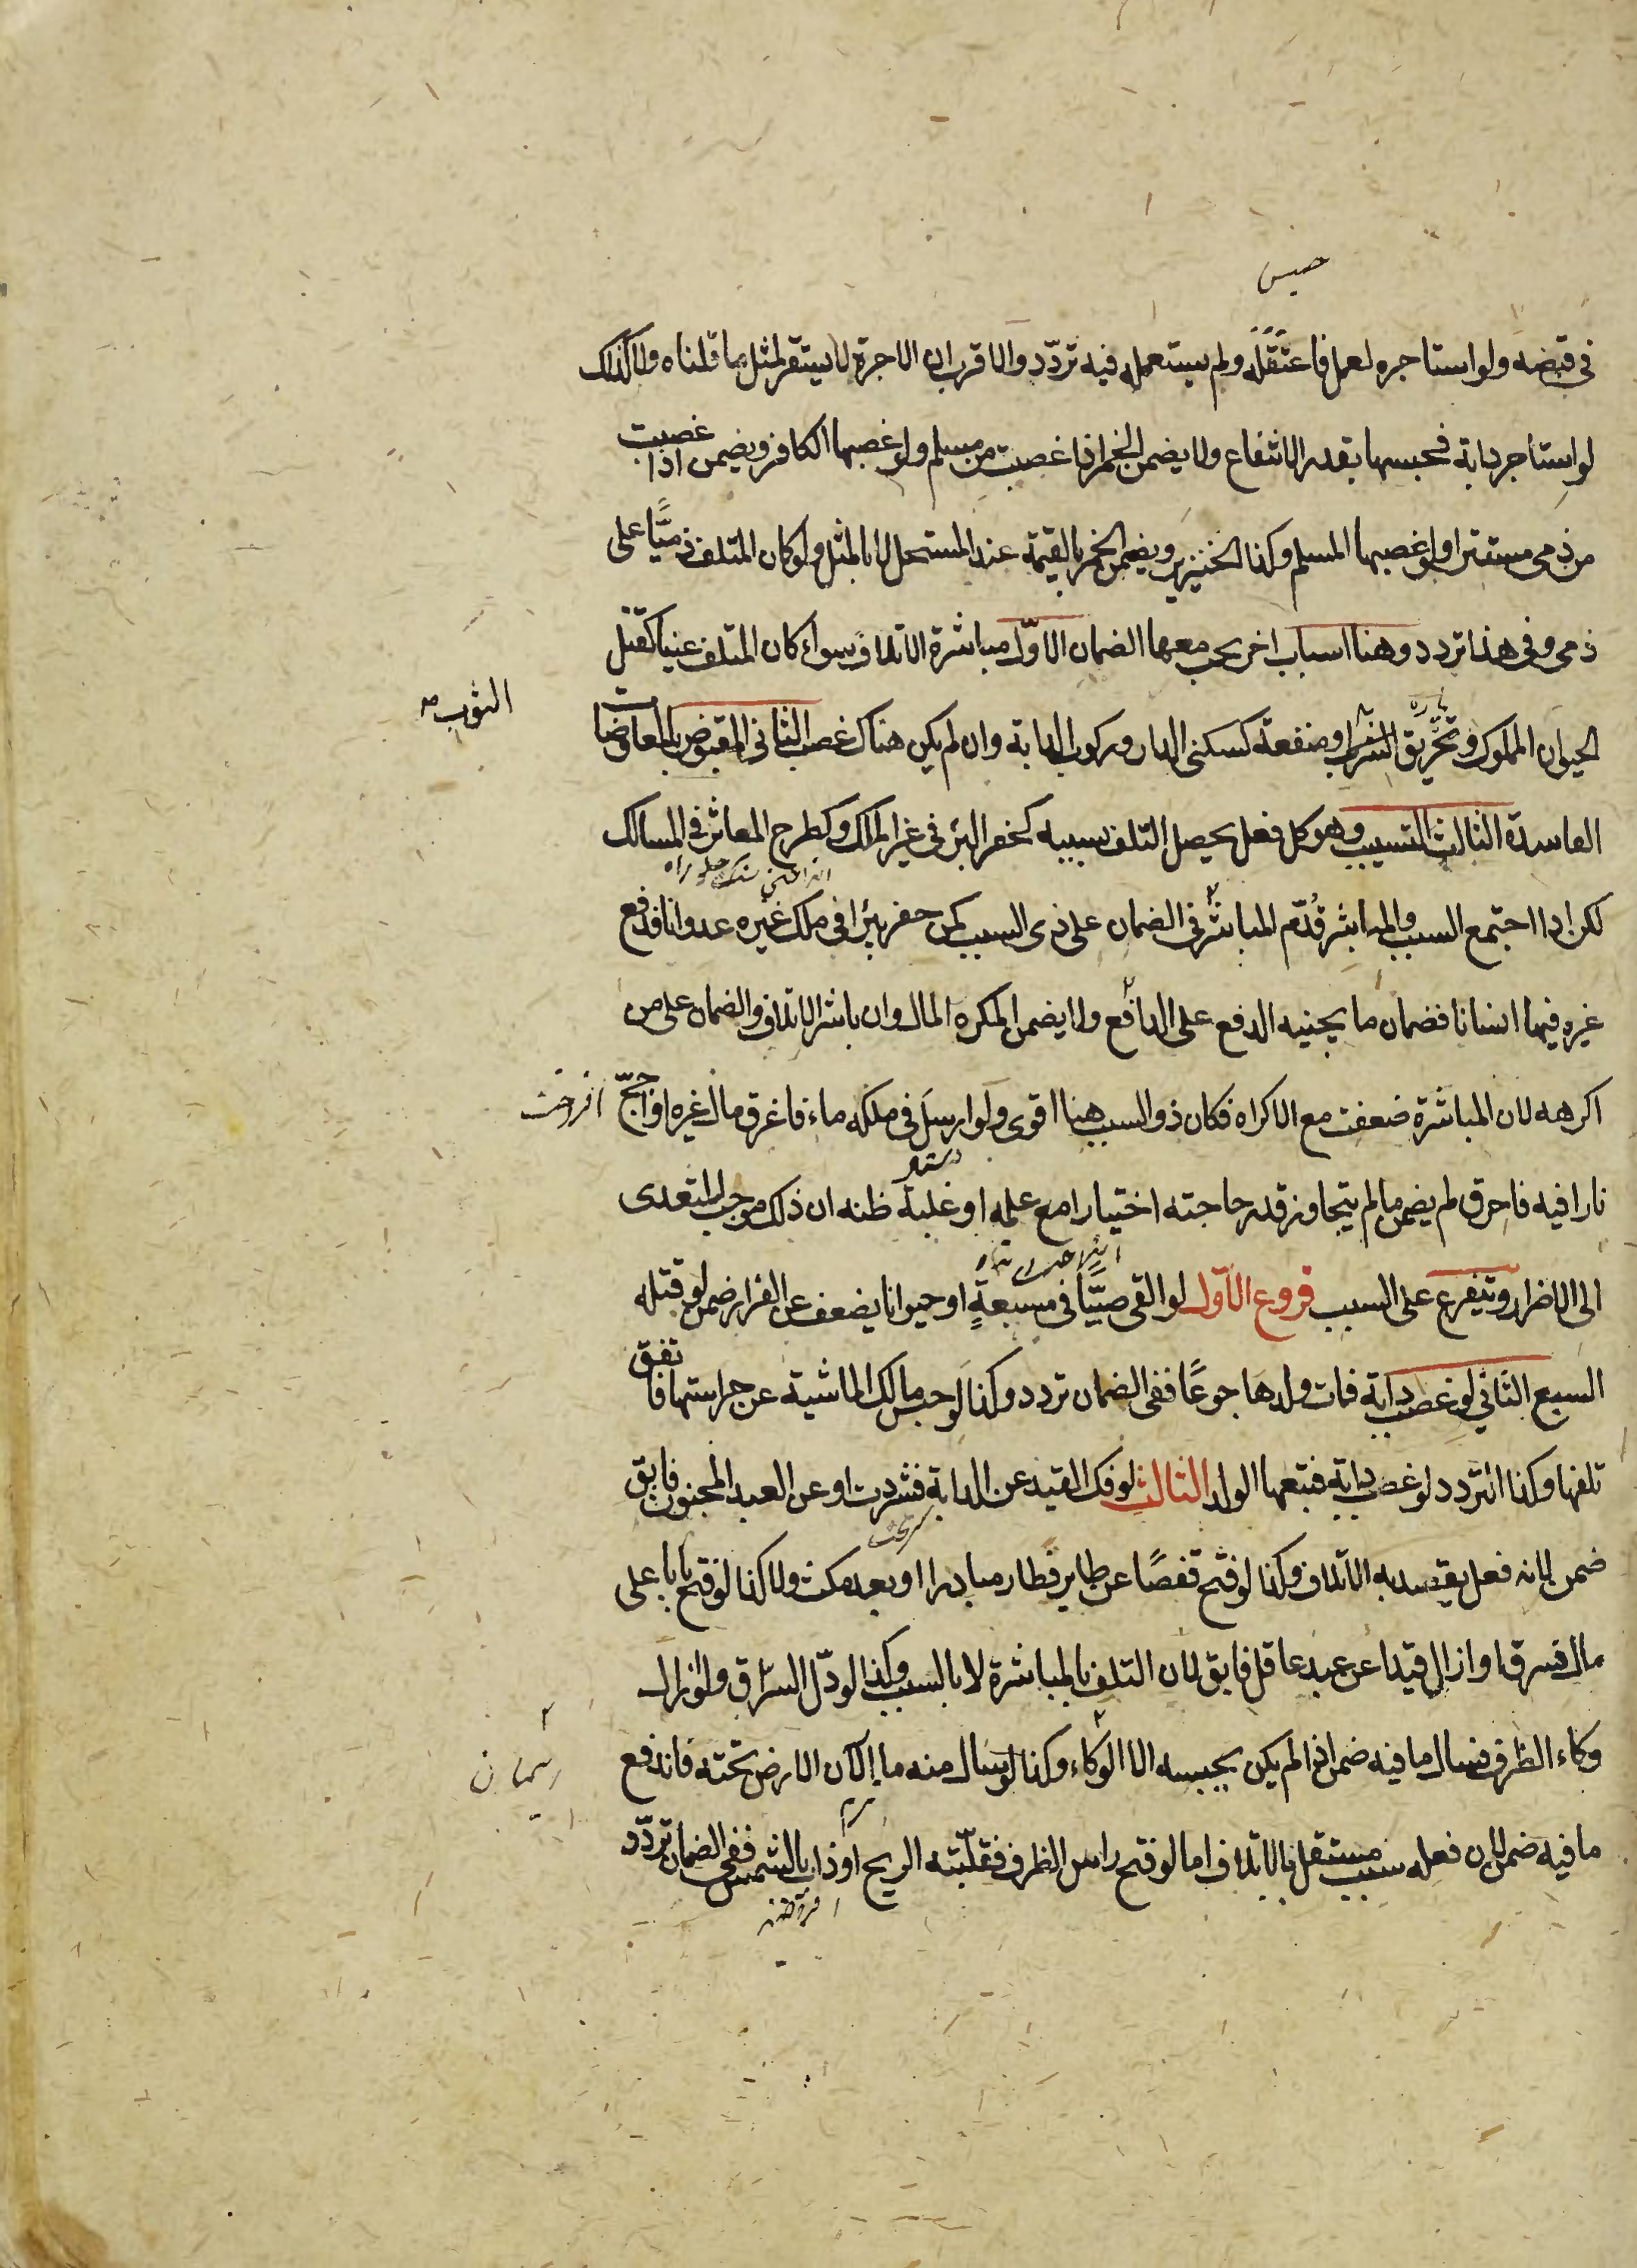 حبس
في قبضه ولو استاجره لعمل فاعتقله ولم يستعمله فيه تردّد والاقرب ان الاجرة لا يستقر لمثل ما قلناه ولا كذلك
لو استاجر دابة فحبسها بقدر الانتفاع ولا يضمن الخمر اذا غصبت من مسلم ولو غصبها الكافر ويضمن اذا غصبت
من ذمى مستترا ولو غصبها المسلم وكذا الخنزير ويضمن الخمر بالقيمة عند المستحل لا بالمثل ولو كان المتلف ذميًّا على
ذمى وفى هذا تردد وهنا اسباب اخر يجب معها الضمان الاوّل مباشرة الاتلاف سواء كان المتلف عينا كقتل
الحيوان المملوك وتخريق الثوب او منفعة كسكنى الدار وركوب الدابة وان لم يكن هناك غصب الثانى المقبوض بالمعاوضات
الثوب
پاره
الفاسدة الثالث التسبيب وهو كل فعل يحصل التلف بسببه كحفر البئر فى غير الملك وكطرح المعاثر فى المسالك
لكن اذا اجتمع السبب والمباشر قُدّم المباشر فى الضمان على ذى السبب كمن حفر بئرا فى ملك غيره عدوانا فدفع
غيره فيها انسانا فضمان ما يجنيه الدفع على الدافع ولا يضمن المكره المال وان باشر الاتلاف والضمان على من
اكرهه لان المباشرة ضعفت مع الاكراه فكان ذو السبب هنا اقوى ولو ارسل فى ملكه ماء فاغرق مال غيره او اجّج
افروخت
نارا فيه فاحرق لم يضمن ما لم يتجاوز قدر حاجته اختيارا مع علمه او غلبة ظنه ان ذلك موجب للتعدى
الى الاضرار ويتفرع على السبب فروع الاوّل لو القى صبيًّا فى مسبعةٍ او حيوانا يضعف عن الفرار ضمن لو قتله
السبع الثانى لو غصب دابة فمات ولدها جوعًا ففى الضمان تردد وكذا لو حبس مالك الماشية عن حراستها فاتفق
تلفها وكذا التردد لو غصب دابة فتبعها الولد الثالث لو فك القيد عن الدابة فشردت او عن العبد المجنون فابق
ضمن لانه فعل يقصد به الاتلاف وكذا لو فتح قفصًا عن طاير فطار مبادرا او بعد مكث ولا كذا لو فتح بابا على
مال فسرق او ازال قيدا عن عبد عاقل فابق لان التلف بالمباشرة لا بالسبب وكذا لو دلّ السرّاق ولو ازال
وكاء الظرف فسال ما فيه ضمن اذا لم يكن يحبسه الا الوكاء وكذا لو سال منه ما الان الارض تحته فاندفع
ريسمان
ما فيه ضمن لان فعله سبب مستقل بالاتلاف اما لو فتح راس الظرف فقلبته الريح او ذاب بالشمس ففى الضمان تردّد